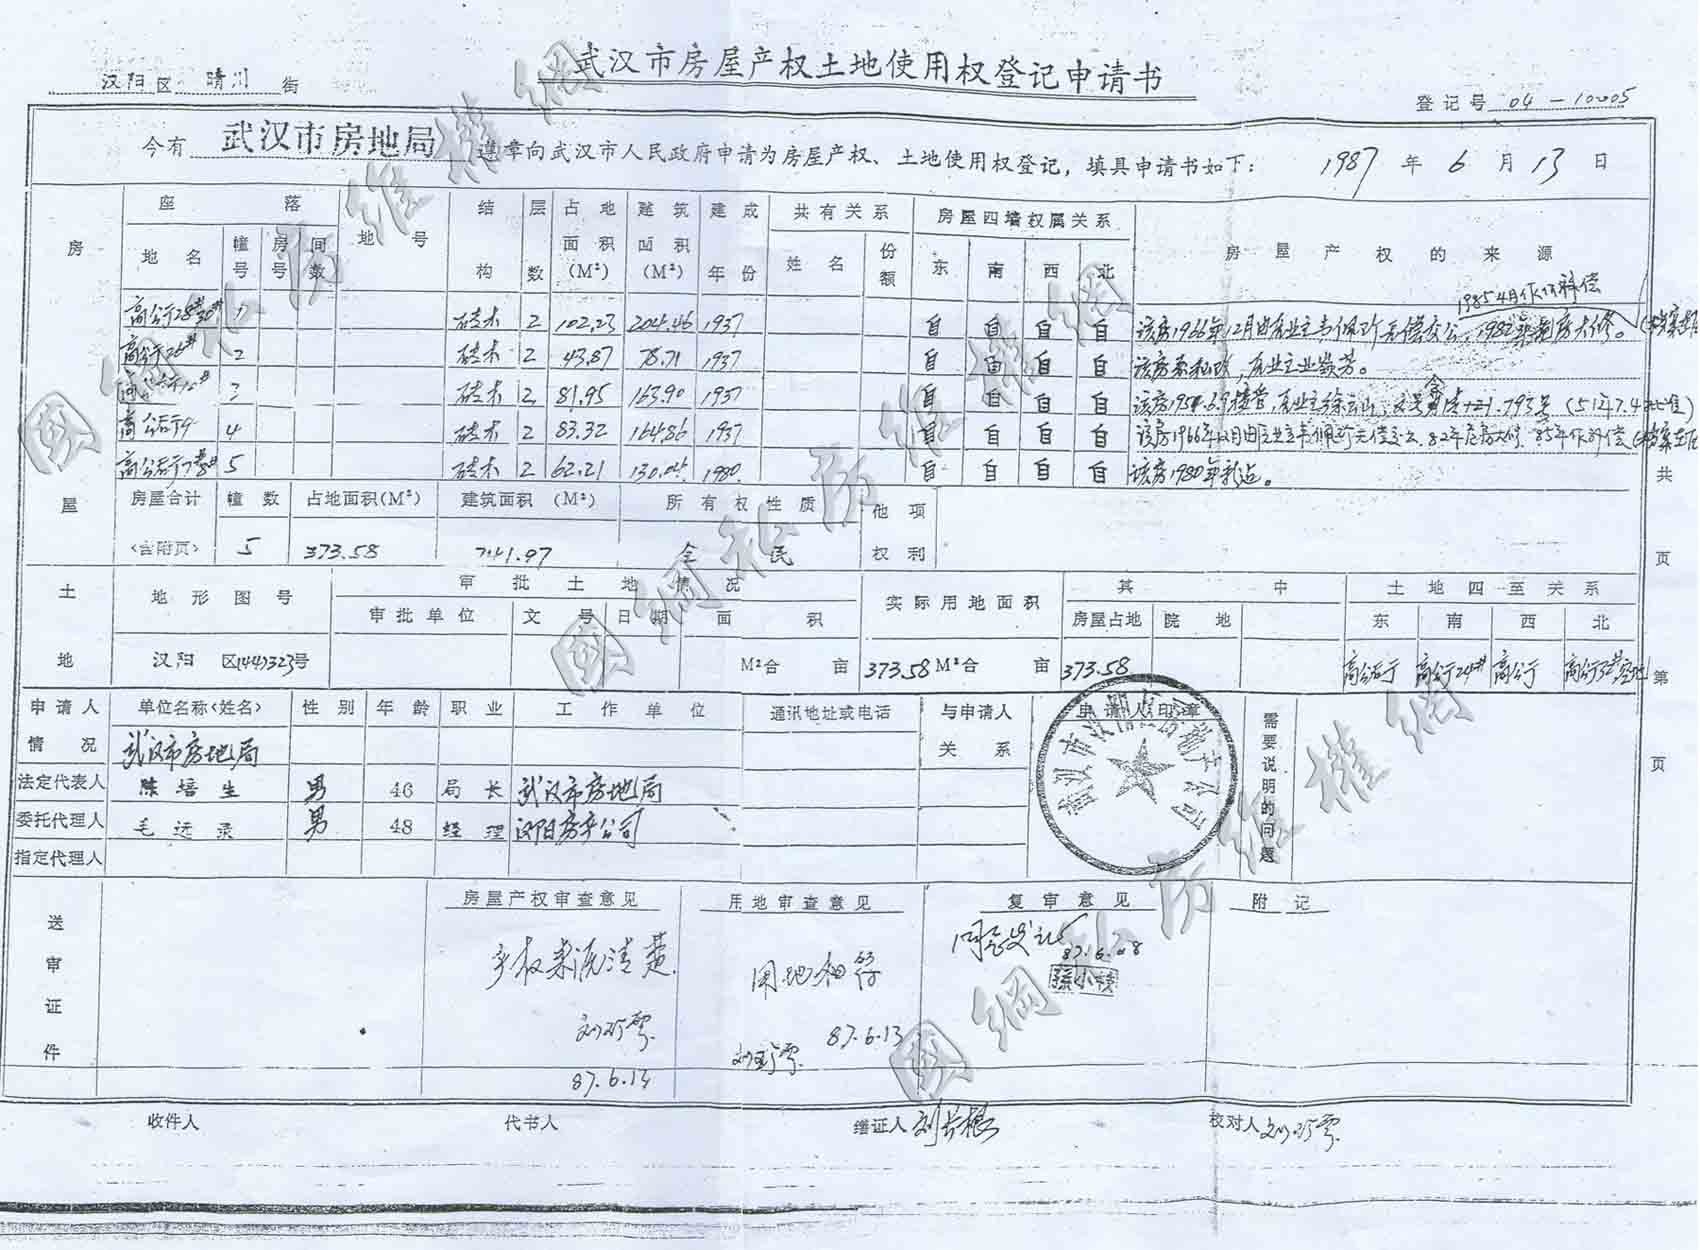 武汉市房屋产权土地使用权登记申请书
汉阳区 晴川 街
登记号 04－10005
今有 武汉市房地局 遵章向武汉市人民政府申请为房屋产权、土地使用权登记，填具申请书如下： 1987 年 6 月 13 日
房 屋
座 落 地 号 结构 层数 占地面积(M²) 建筑面积(M²) 建成年份 共有关系 房屋四墙权属关系 房屋产权的来源
地名 幢号 房号 间数 姓名 份额 东 南 西 北
1985年4月作价补偿
高公街28#30# 1 砖木 2 102.23 204.46 1937 自 自 自 自 该房1966年12月由房业主 无偿交公，1982年 房大修。
高公街26# 2 砖木 2 43.87 78.71 1937 自 自 自 自 该房系私改，房业主业
3 砖木 2 81.95 163.90 1937 自 自 自 自 该房195 .6.9接管，房业主徐云山，
高公后街9 4 砖木 2 83.32 164.86 1937 自 自 自 自 该房1966年12月由房业主 无偿交公，82年 房大修，85年作价补偿
高公后街7#8# 5 砖木 2 62.21 130.04 1980 自 自 自 自 该房1980年新造。
房屋合计 幢数 占地面积(M²) 建筑面积(M²) 所有权性质 他项权利
<含附页> 5 373.58 741.97 全 民
共 页
土 地
地形图号 审批土地情况 实际用地面积 其中 土地四至关系
审批单位 文号 日期 面积 房屋占地 院地 东 南 西 北
汉阳 区(44)323号 M²合 亩 373.58 M²合 亩 373.58 高公后街 高公街24# 高公街 高公街32#空地
第 页
申请人情况 单位名称<姓名> 性别 年龄 职业 工作单位 通讯地址或电话 与申请人关系 申请人印章 需要说明的问题
武汉市房地局
法定代表人 陈培生 男 46 局长 武汉市房地局
委托代理人 毛远录 男 48 经理 汉阳房产公司
指定代理人
武汉市汉阳区房地产公司
送审证件 房屋产权审查意见 用地审查意见 复审意见 附记
产权来源清楚
刘珍霞
87.6.13
用地相符
87.6.13
刘珍霞
同意发证
87.6.
收件人 代书人 缮证人 刘长根 校对人 刘珍霞
國網私房維權網
國網私房維權網
國網私房維權網